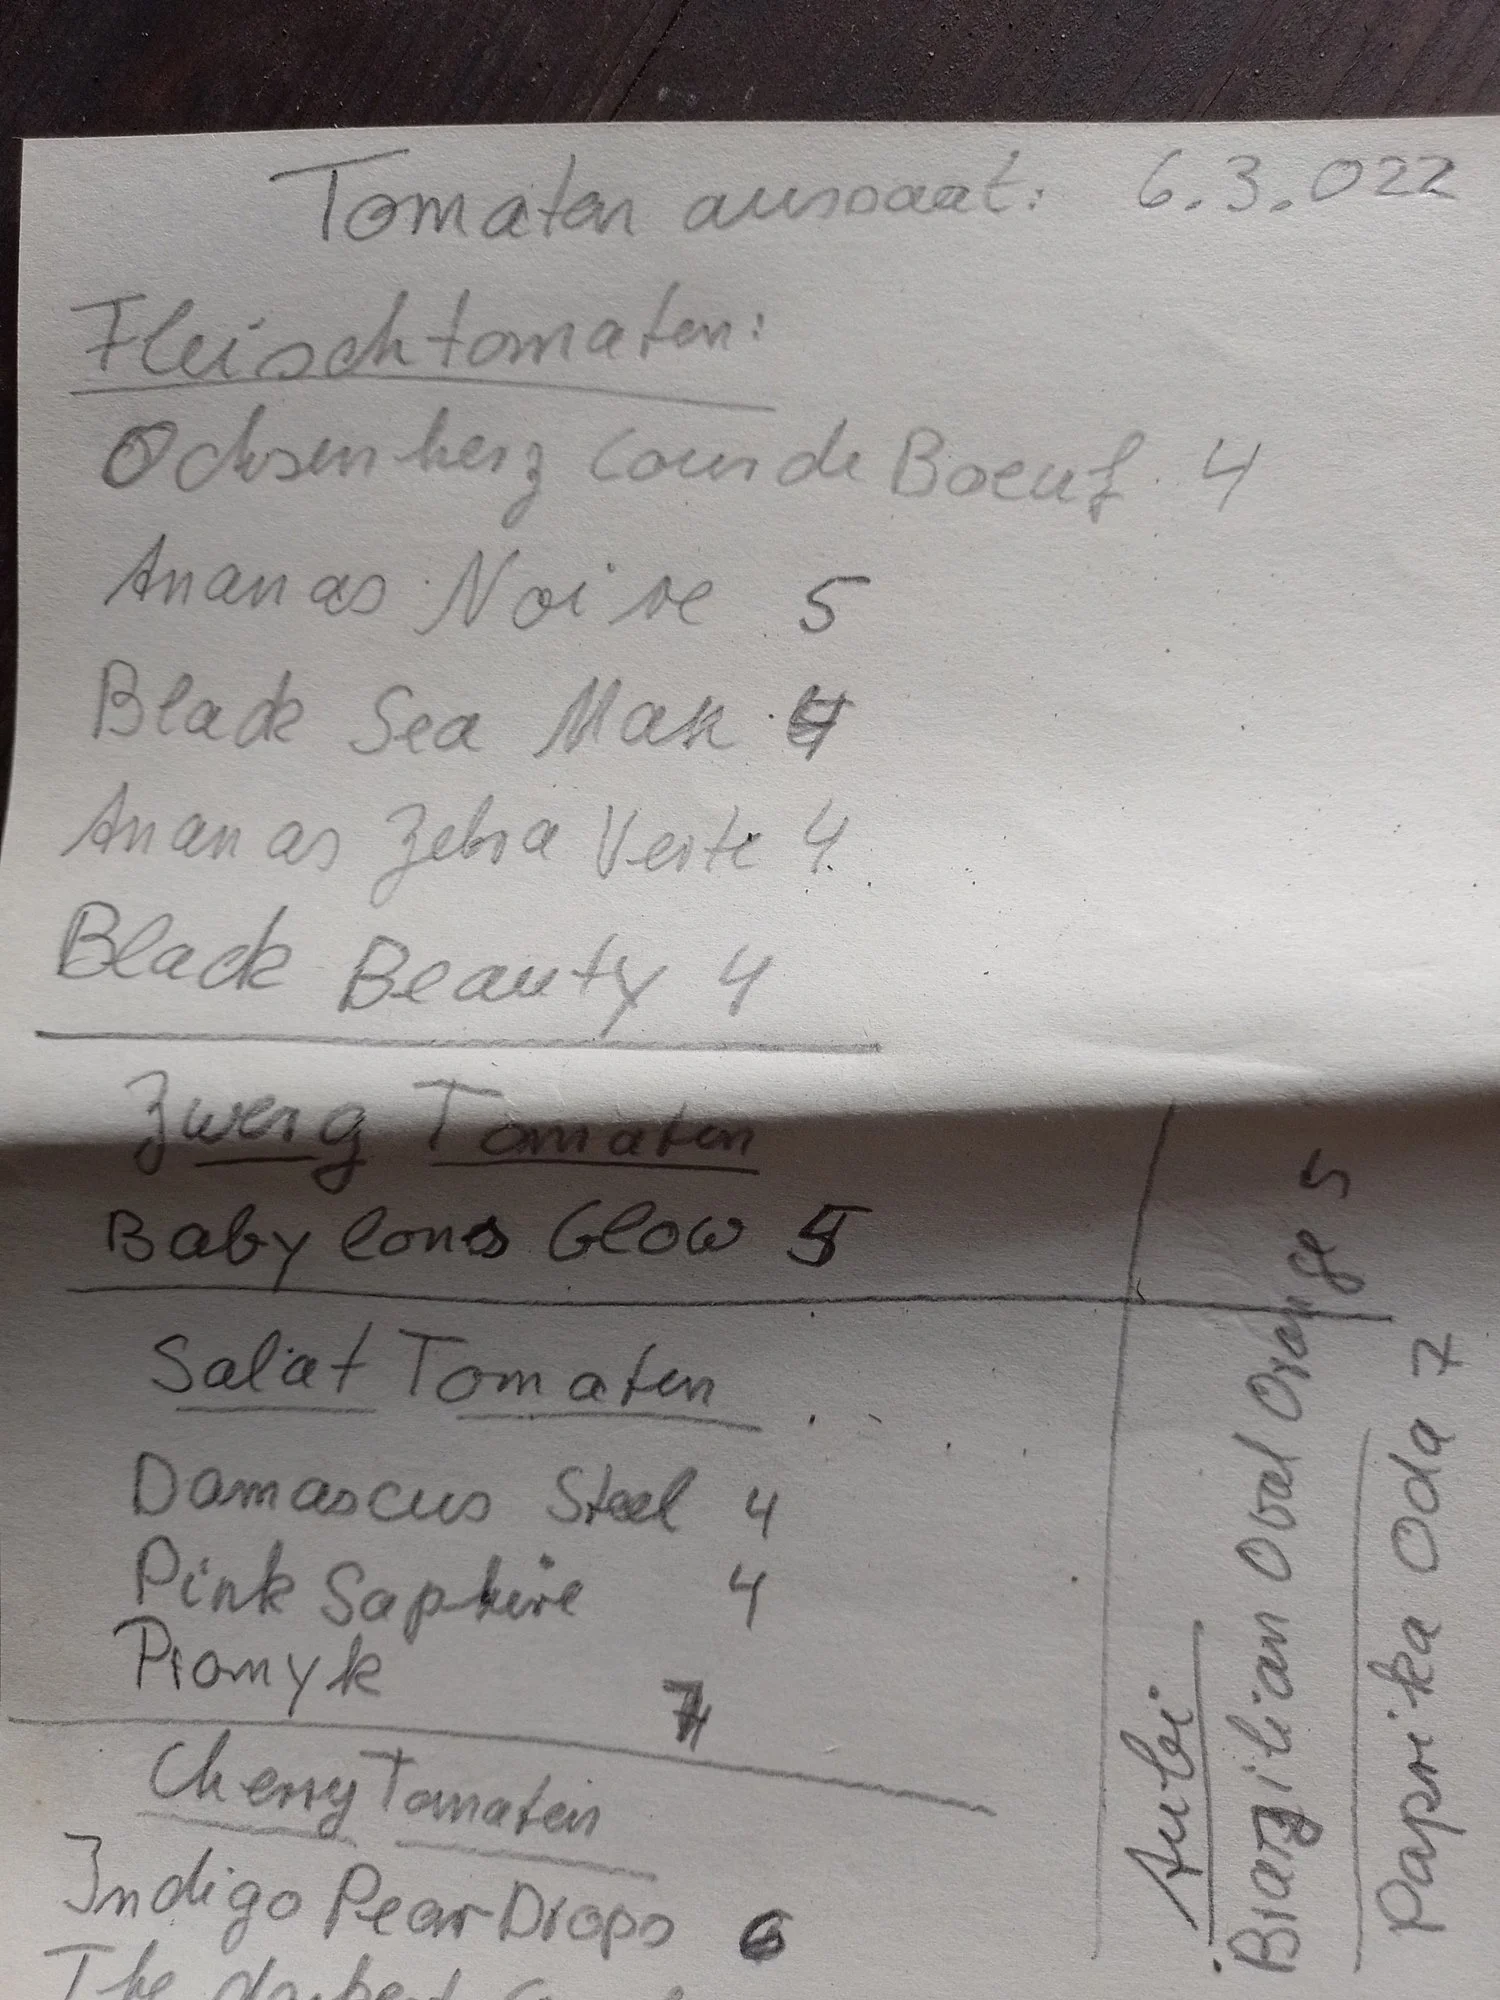 Tomaten aussaat: 6.3.022
Fleischtomaten:
Ochsenherz Cour de Boeuf 4
Ananas Noire 5
Black Sea Man 4
Ananas Zebra Verte 4
Black Beauty 4
Zwerg Tomaten
Babylons Glow 5
Salat Tomaten
Damascus Steel 4
Pink Saphire 4
Promyk 7
Cherry Tomaten
Indigo Pear Drops 6
The
Aubi
Brazilian Oval Orange 5
Paprika Oda 7